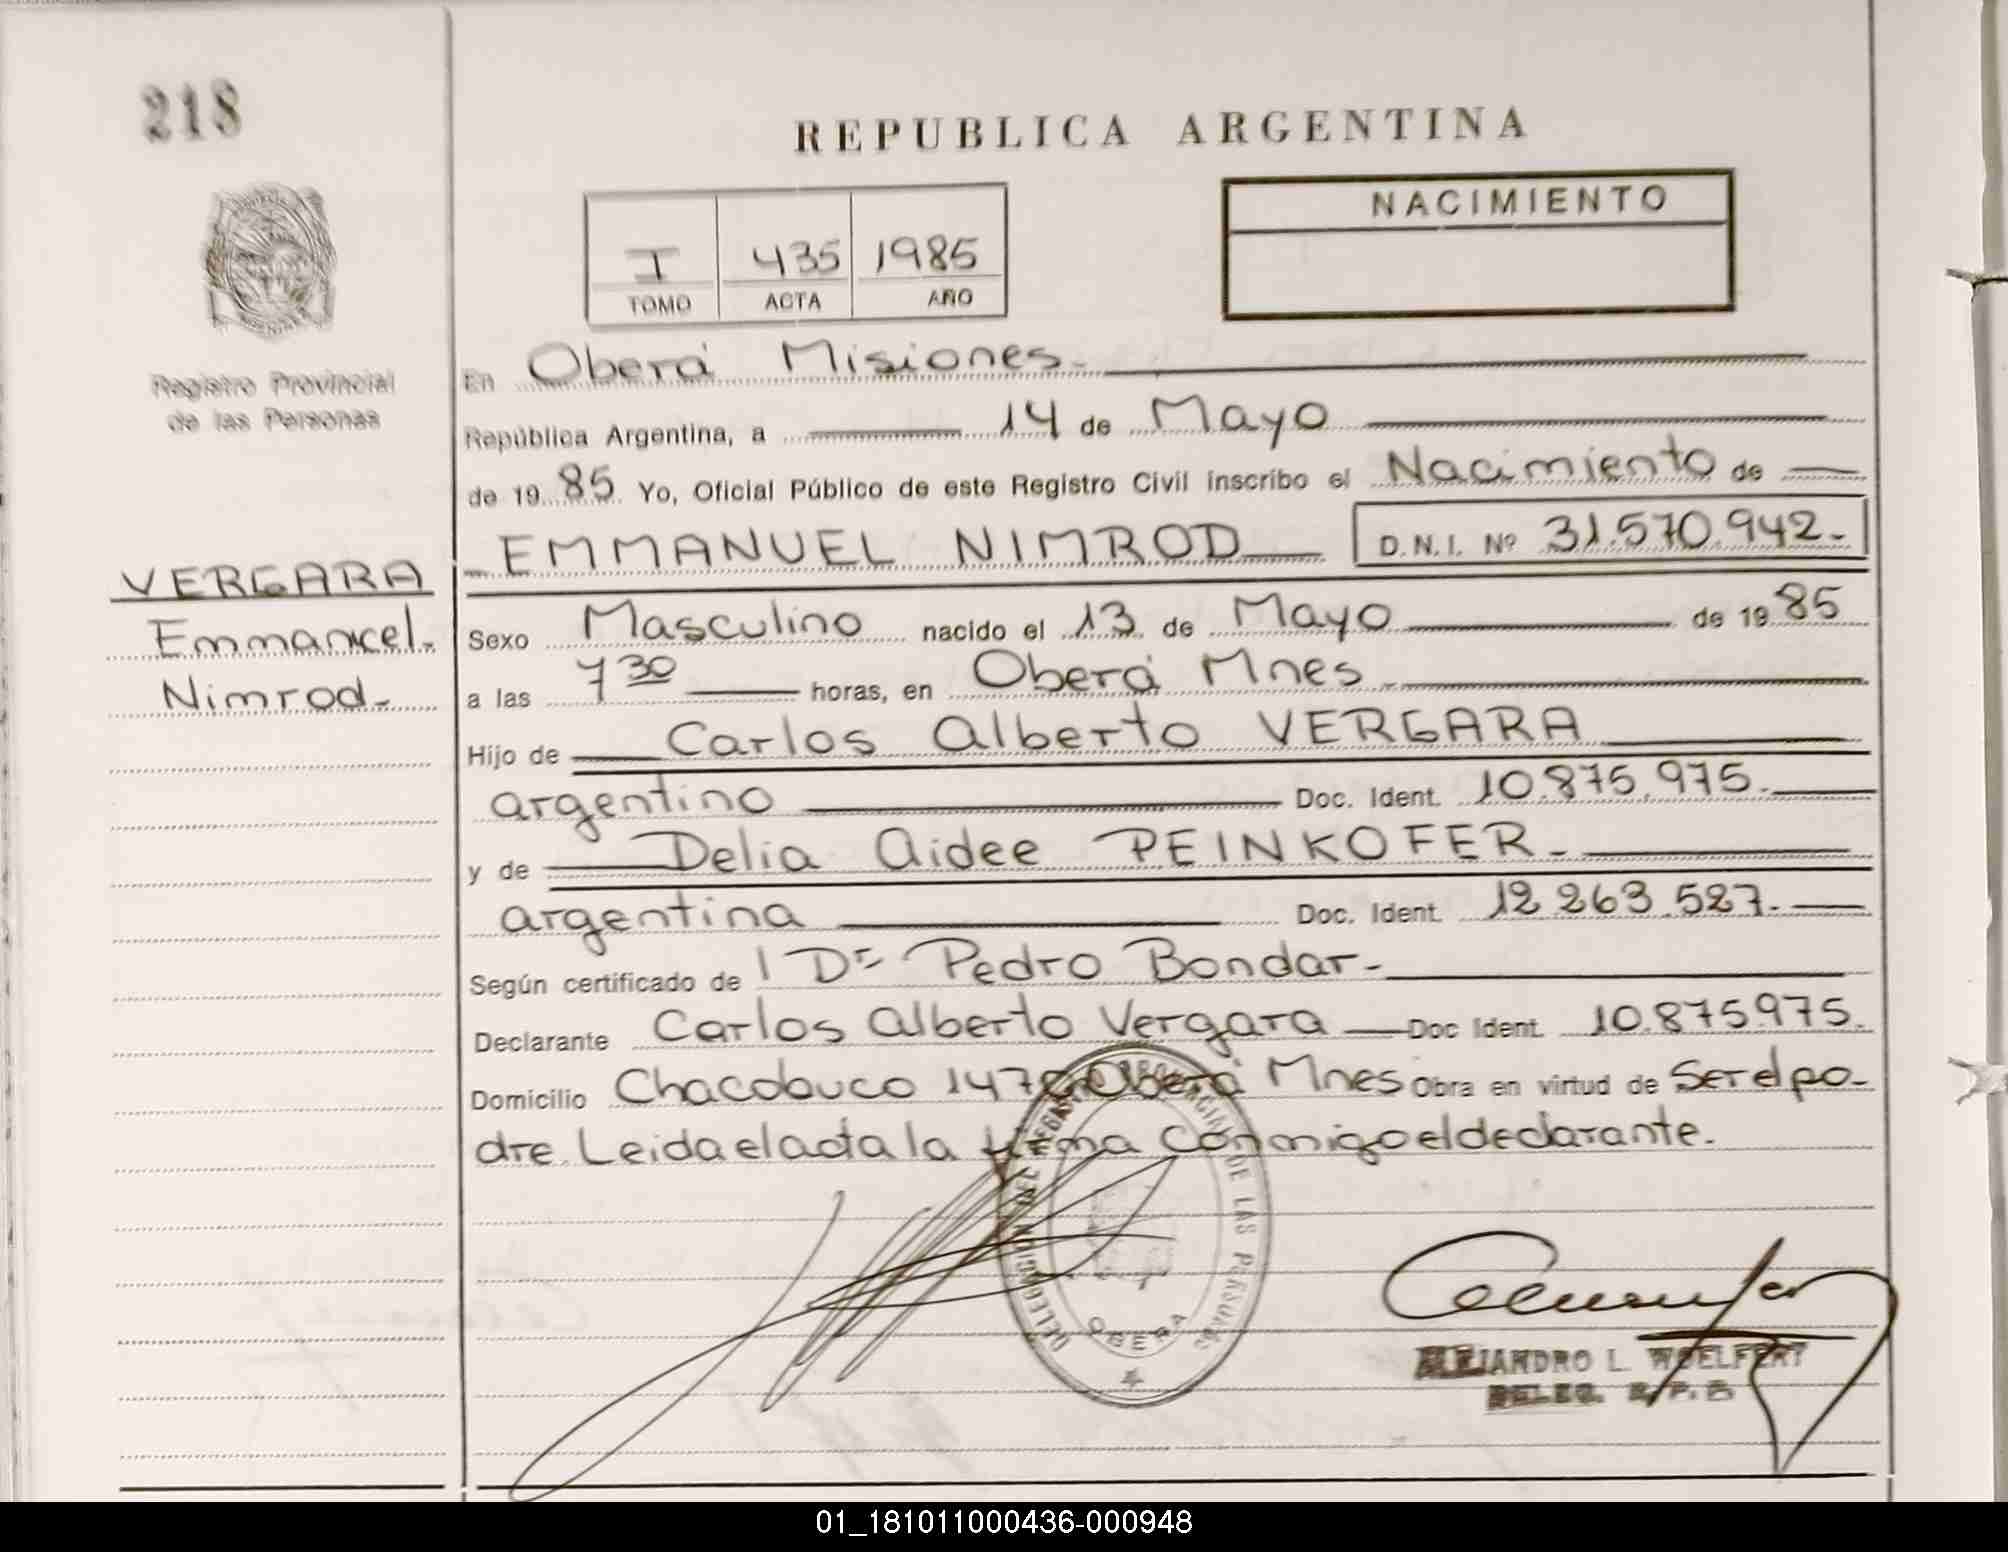 218
REPUBLICA ARGENTINA
NACIMIENTO
I 435 1985
TOMO ACTA AÑO
Registro Provincial
de las Personas
En Oberá Misiones.
República Argentina, a 14 de Mayo
de 19 85 Yo, Oficial Público de este Registro Civil inscribo el Nacimiento de
EMMANUEL NIMROD D.N.I. Nº 31.570.942.
VERGARA
Emmanuel.
Nimrod.
Sexo Masculino nacido el 13 de Mayo de 19 85
a las 7 30 horas, en Oberá Mnes
Hijo de Carlos Alberto VERGARA
argentino Doc. Ident. 10.875.975.
y de Delia Aidee PEINKOFER.
argentina Doc. Ident. 12.263.527.
Según certificado de Dr Pedro Bondar.
Declarante Carlos Alberto Vergara Doc Ident. 10.875975.
Domicilio Chacabuco Oberá Mnes Obra en virtud de Ser el pa-
dre. Leida el acta la firma conmigo el declarante.
DELEGACION DEL REGISTRO PROVINCIAL DE LAS PERSONAS
OBERA
ALEJANDRO L. WOELFERT
DELEG. R. P. P.
01_181011000436-000948